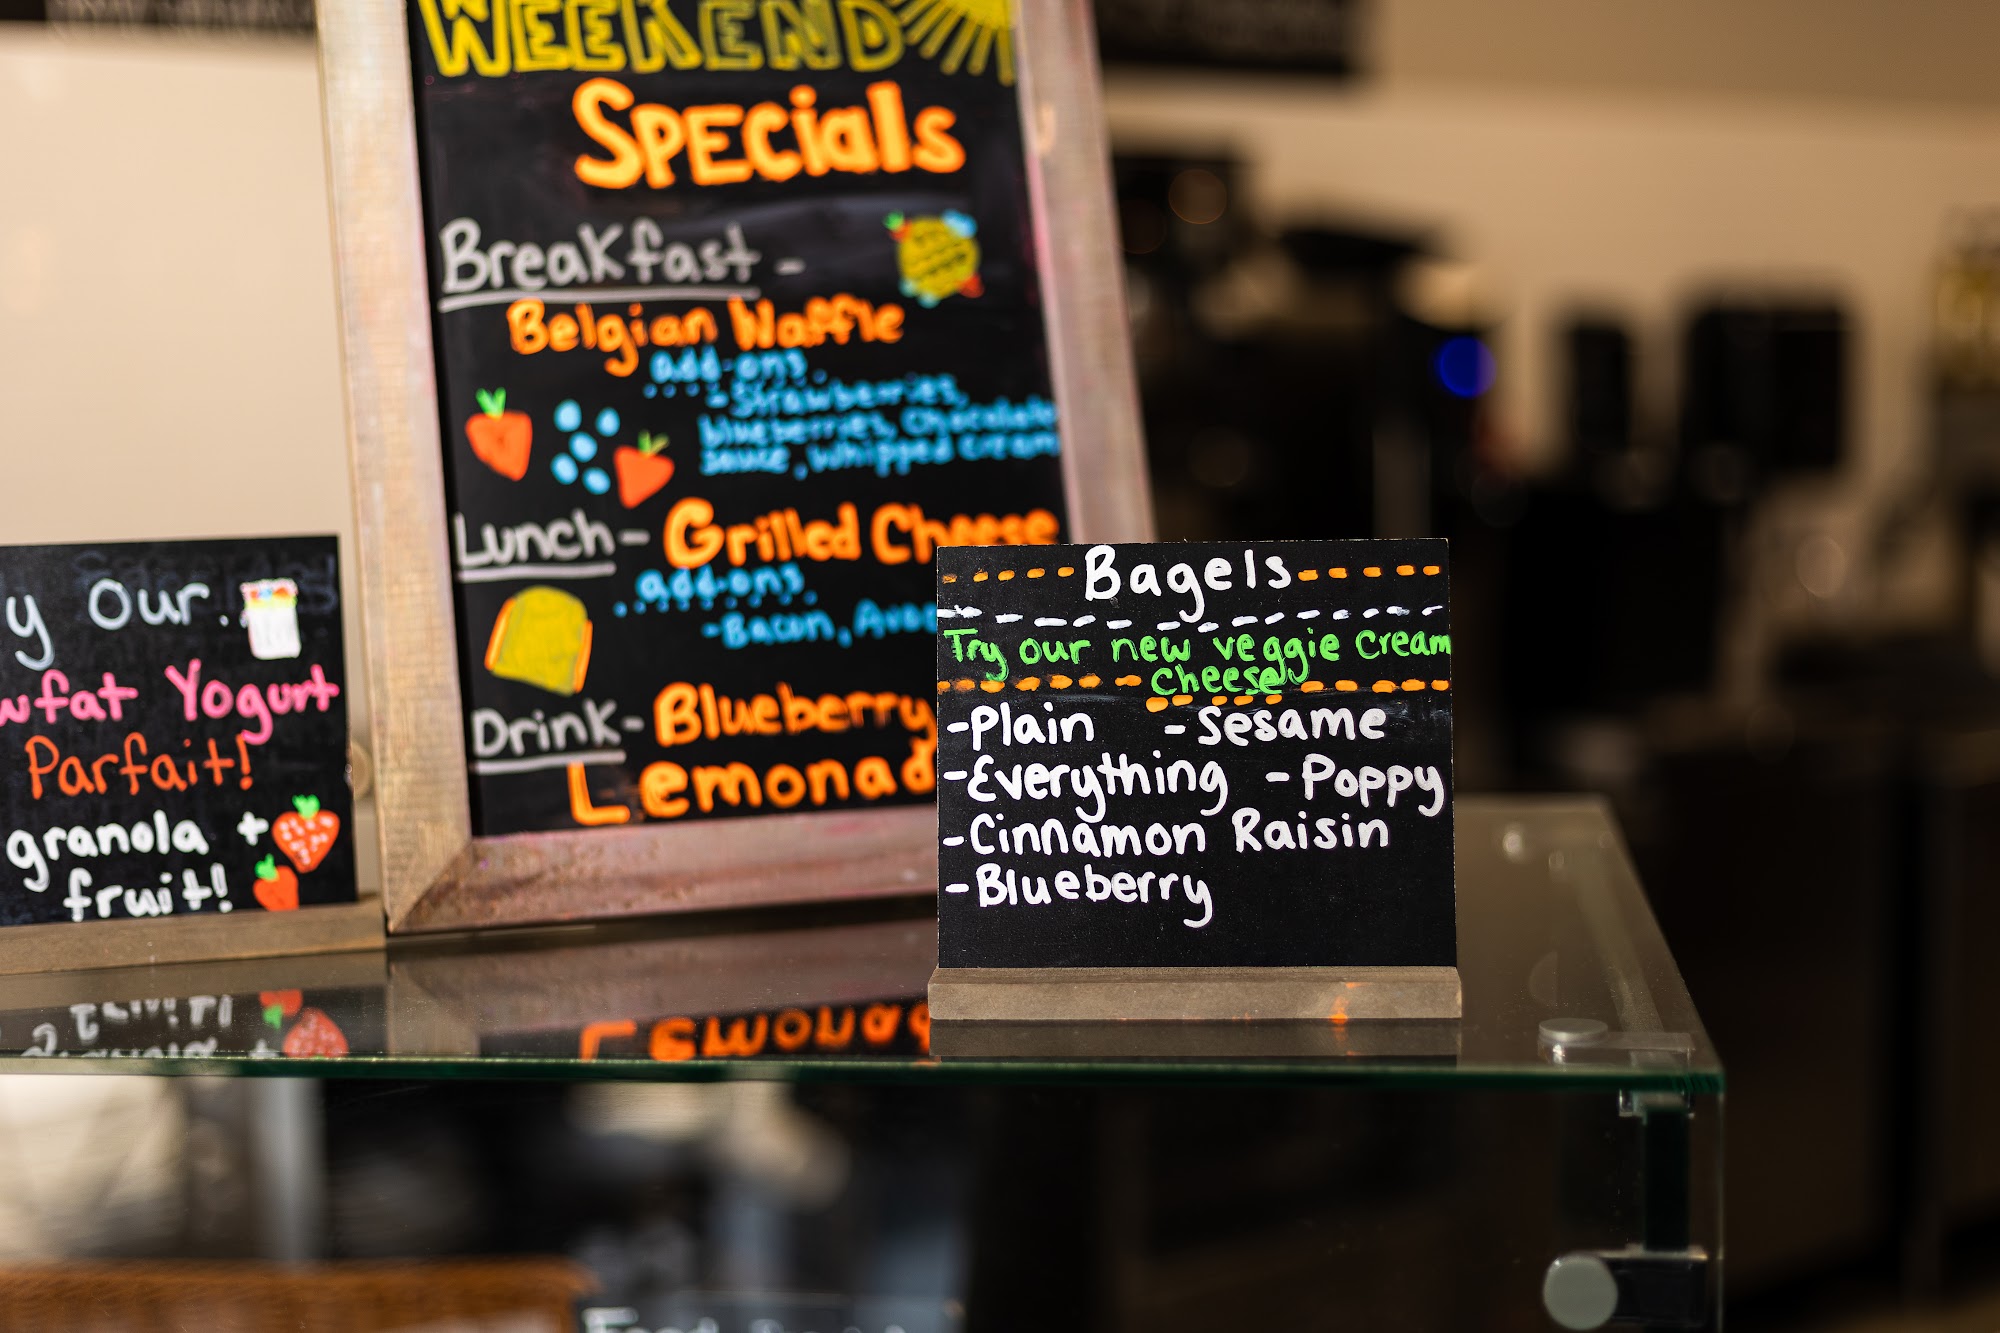 WEEKEND
Specials
Breakfast -
Belgian Waffle
add-ons
- Strawberries,
blueberries, Chocolate
sauce, whipped cream
Lunch - Grilled Cheese
add-ons
- Bacon, Avo
Drink - Blueberry
Lemonad
y our..
wfat Yogurt
Parfait!
granola +
fruit!
Bagels
Try our new veggie cream
cheese
- Plain - Sesame
- Everything - Poppy
- Cinnamon Raisin
- Blueberry